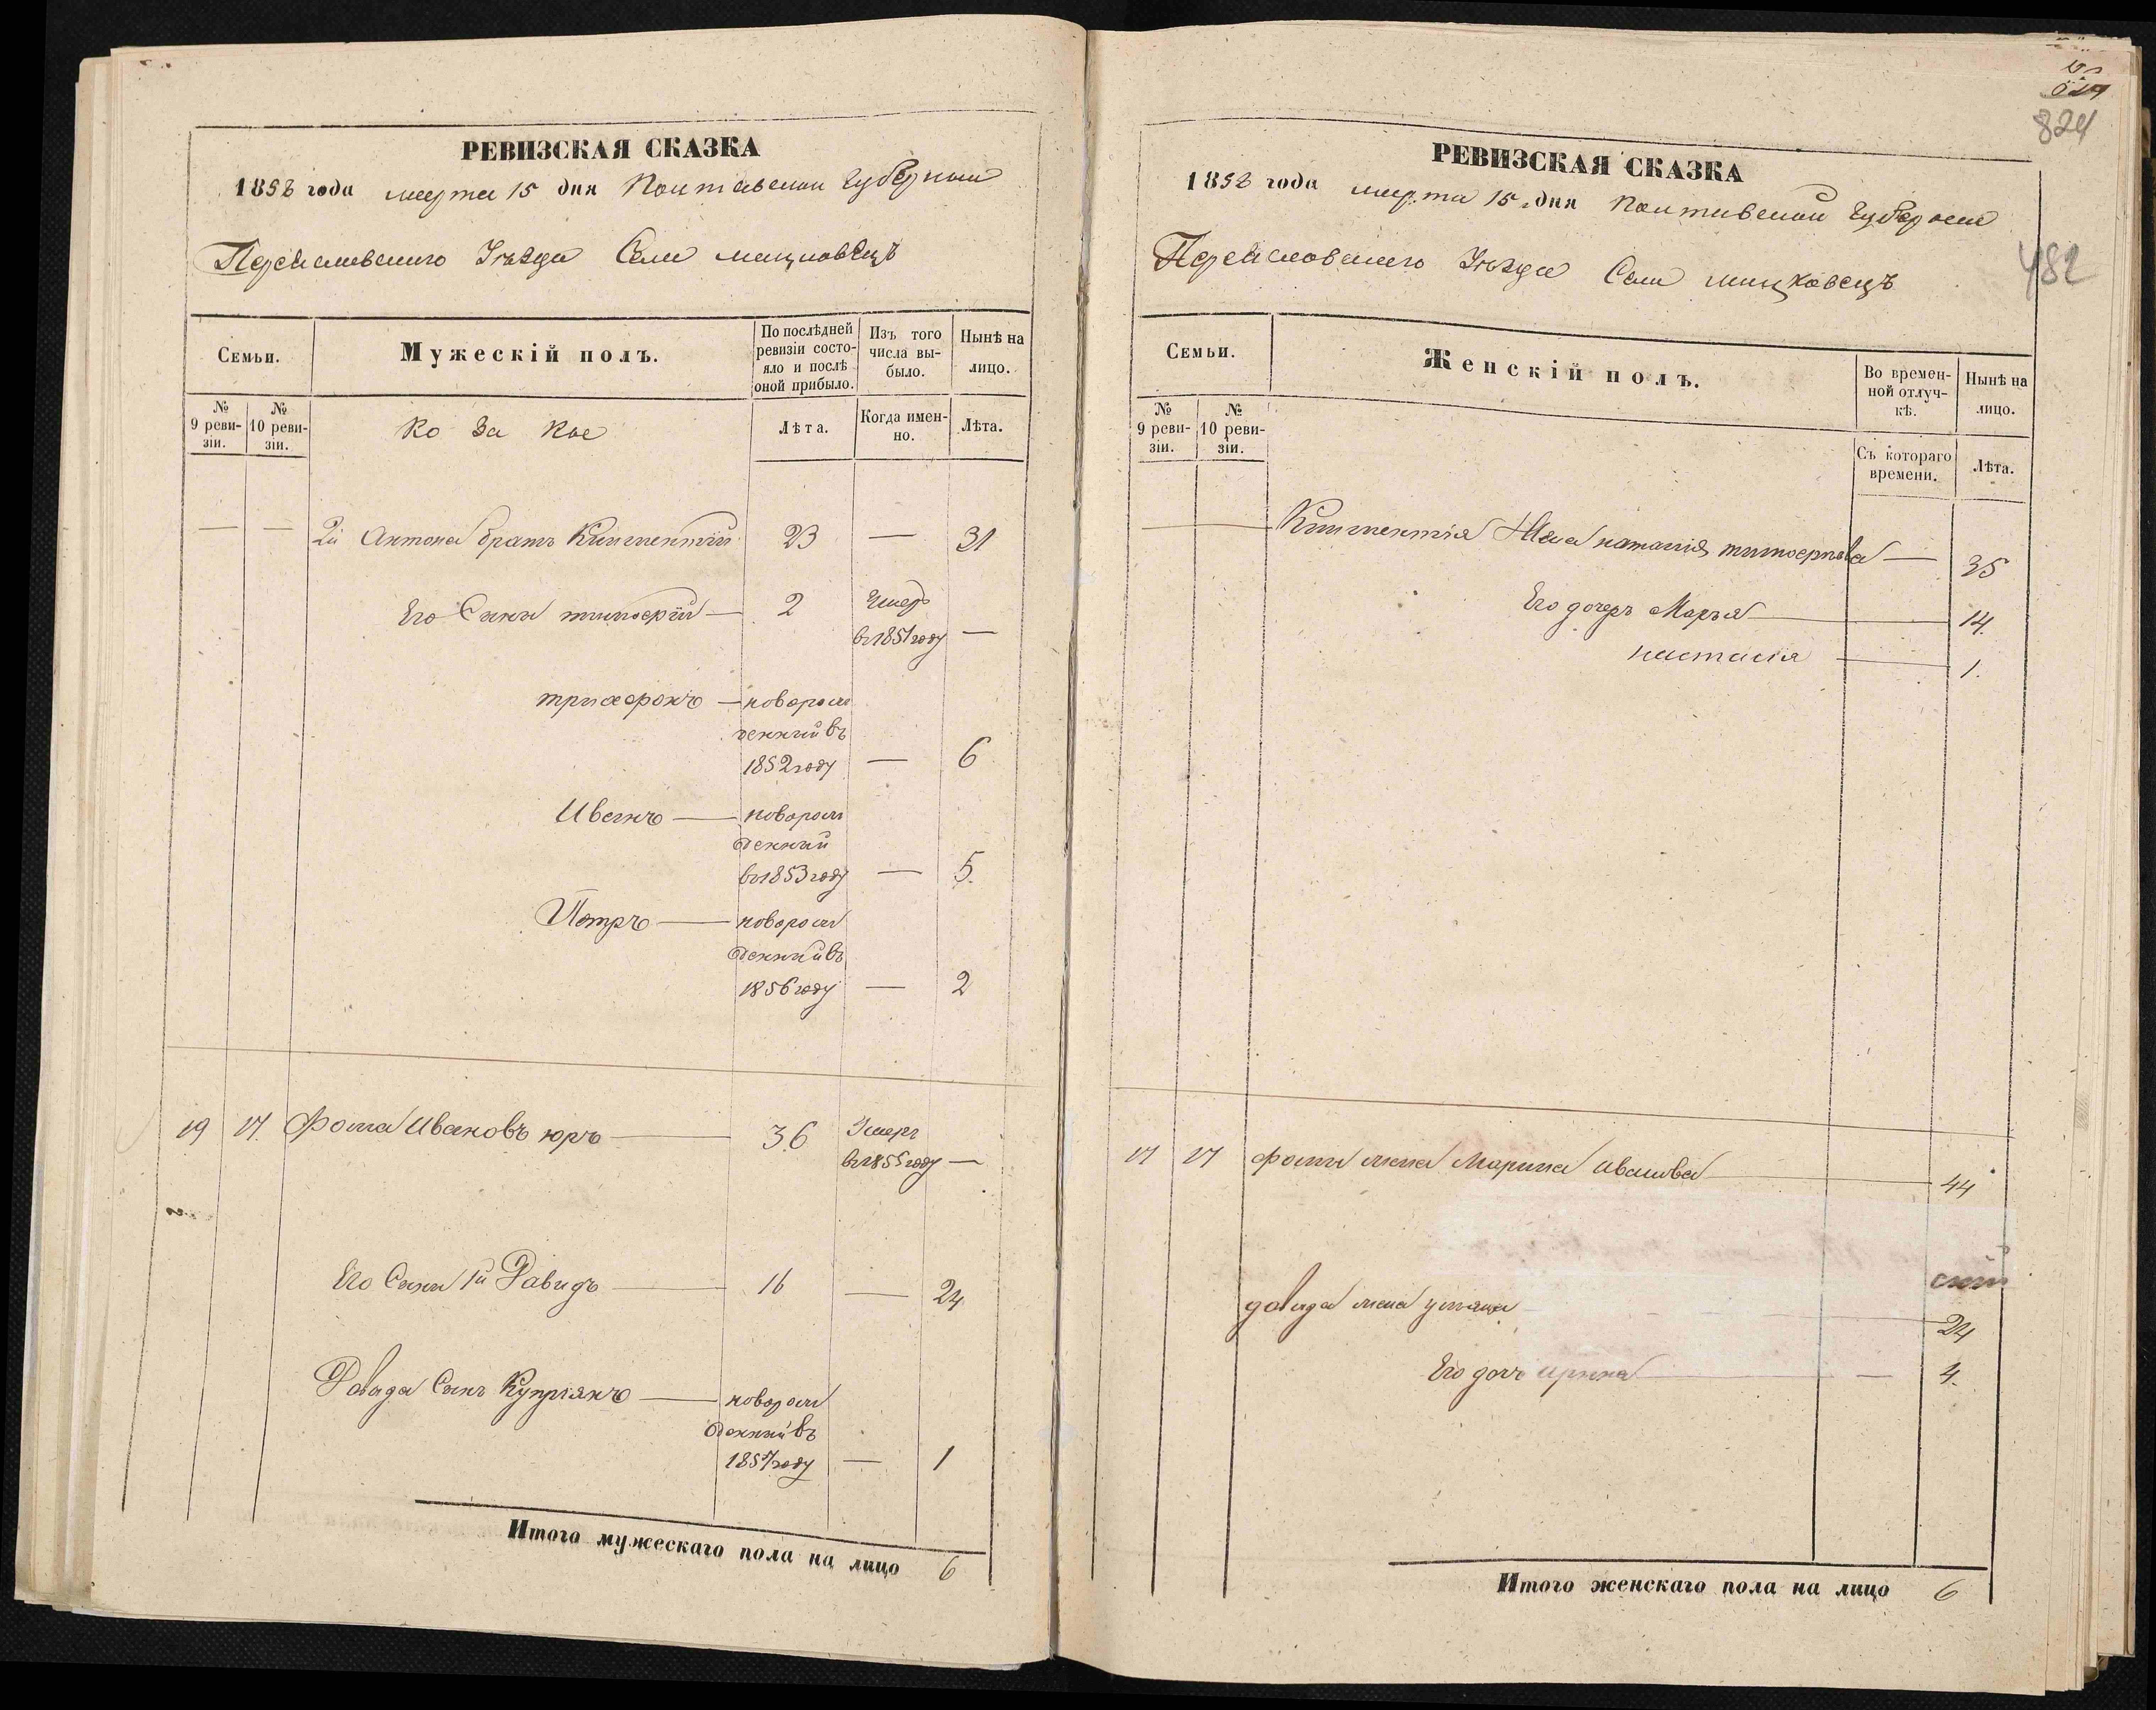 РЕВИЗСКАЯ СКАЗКА
1858 года марта 15 дня Полтавской губернии
Переяславского Уѣзда Села Мацковецъ
Семьи.
Мужескій полъ.
По послѣдней ревизіи состояло и послѣ оной прибыло.
Изъ того числа выбыло.
Нынѣ на лицо.
№ 9 ревизіи.
№ 10 ревизіи.
Ко за ки
Лѣта.
Когда именно.
Лѣта.
— — 2й Антона братъ Климентій 23 — 31
Его Сыны тимофей — 2 Умеръ
в 1851 году —
трифонъ — новорож
денный въ
1852 году — 6
Иванъ — новорож
денный
в 1853 году — 5.
Петръ — новорож
денный въ
1856 году — 2
19 17. Фома Ивановъ юръ — 36 Умеръ
в 1855 году —
Его Сыны 1й Давидъ — 16 — 24
Давида Сынъ Купріянъ — новорож
денный въ
1857 году — 1
Итого мужескаго пола на лицо 6
824
482
РЕВИЗСКАЯ СКАЗКА
1858 года марта 15 дня Полтавской губернии
Переяславского Уѣзда Села Мацковецъ
Семьи.
Женскій полъ.
Во временной отлучкѣ.
Нынѣ на лицо.
№ 9 ревизіи.
№ 10 ревизіи.
Съ котораго времени.
Лѣта.
— Климентія Жена наталия тимофеева — 35
Его дочеръ Марья — 14.
настасия — 1.
17 17 фомы жена Марина Иванова — 44
давида жена — 24
Его дочь ирина — 4.
Итого женскаго пола на лицо 6